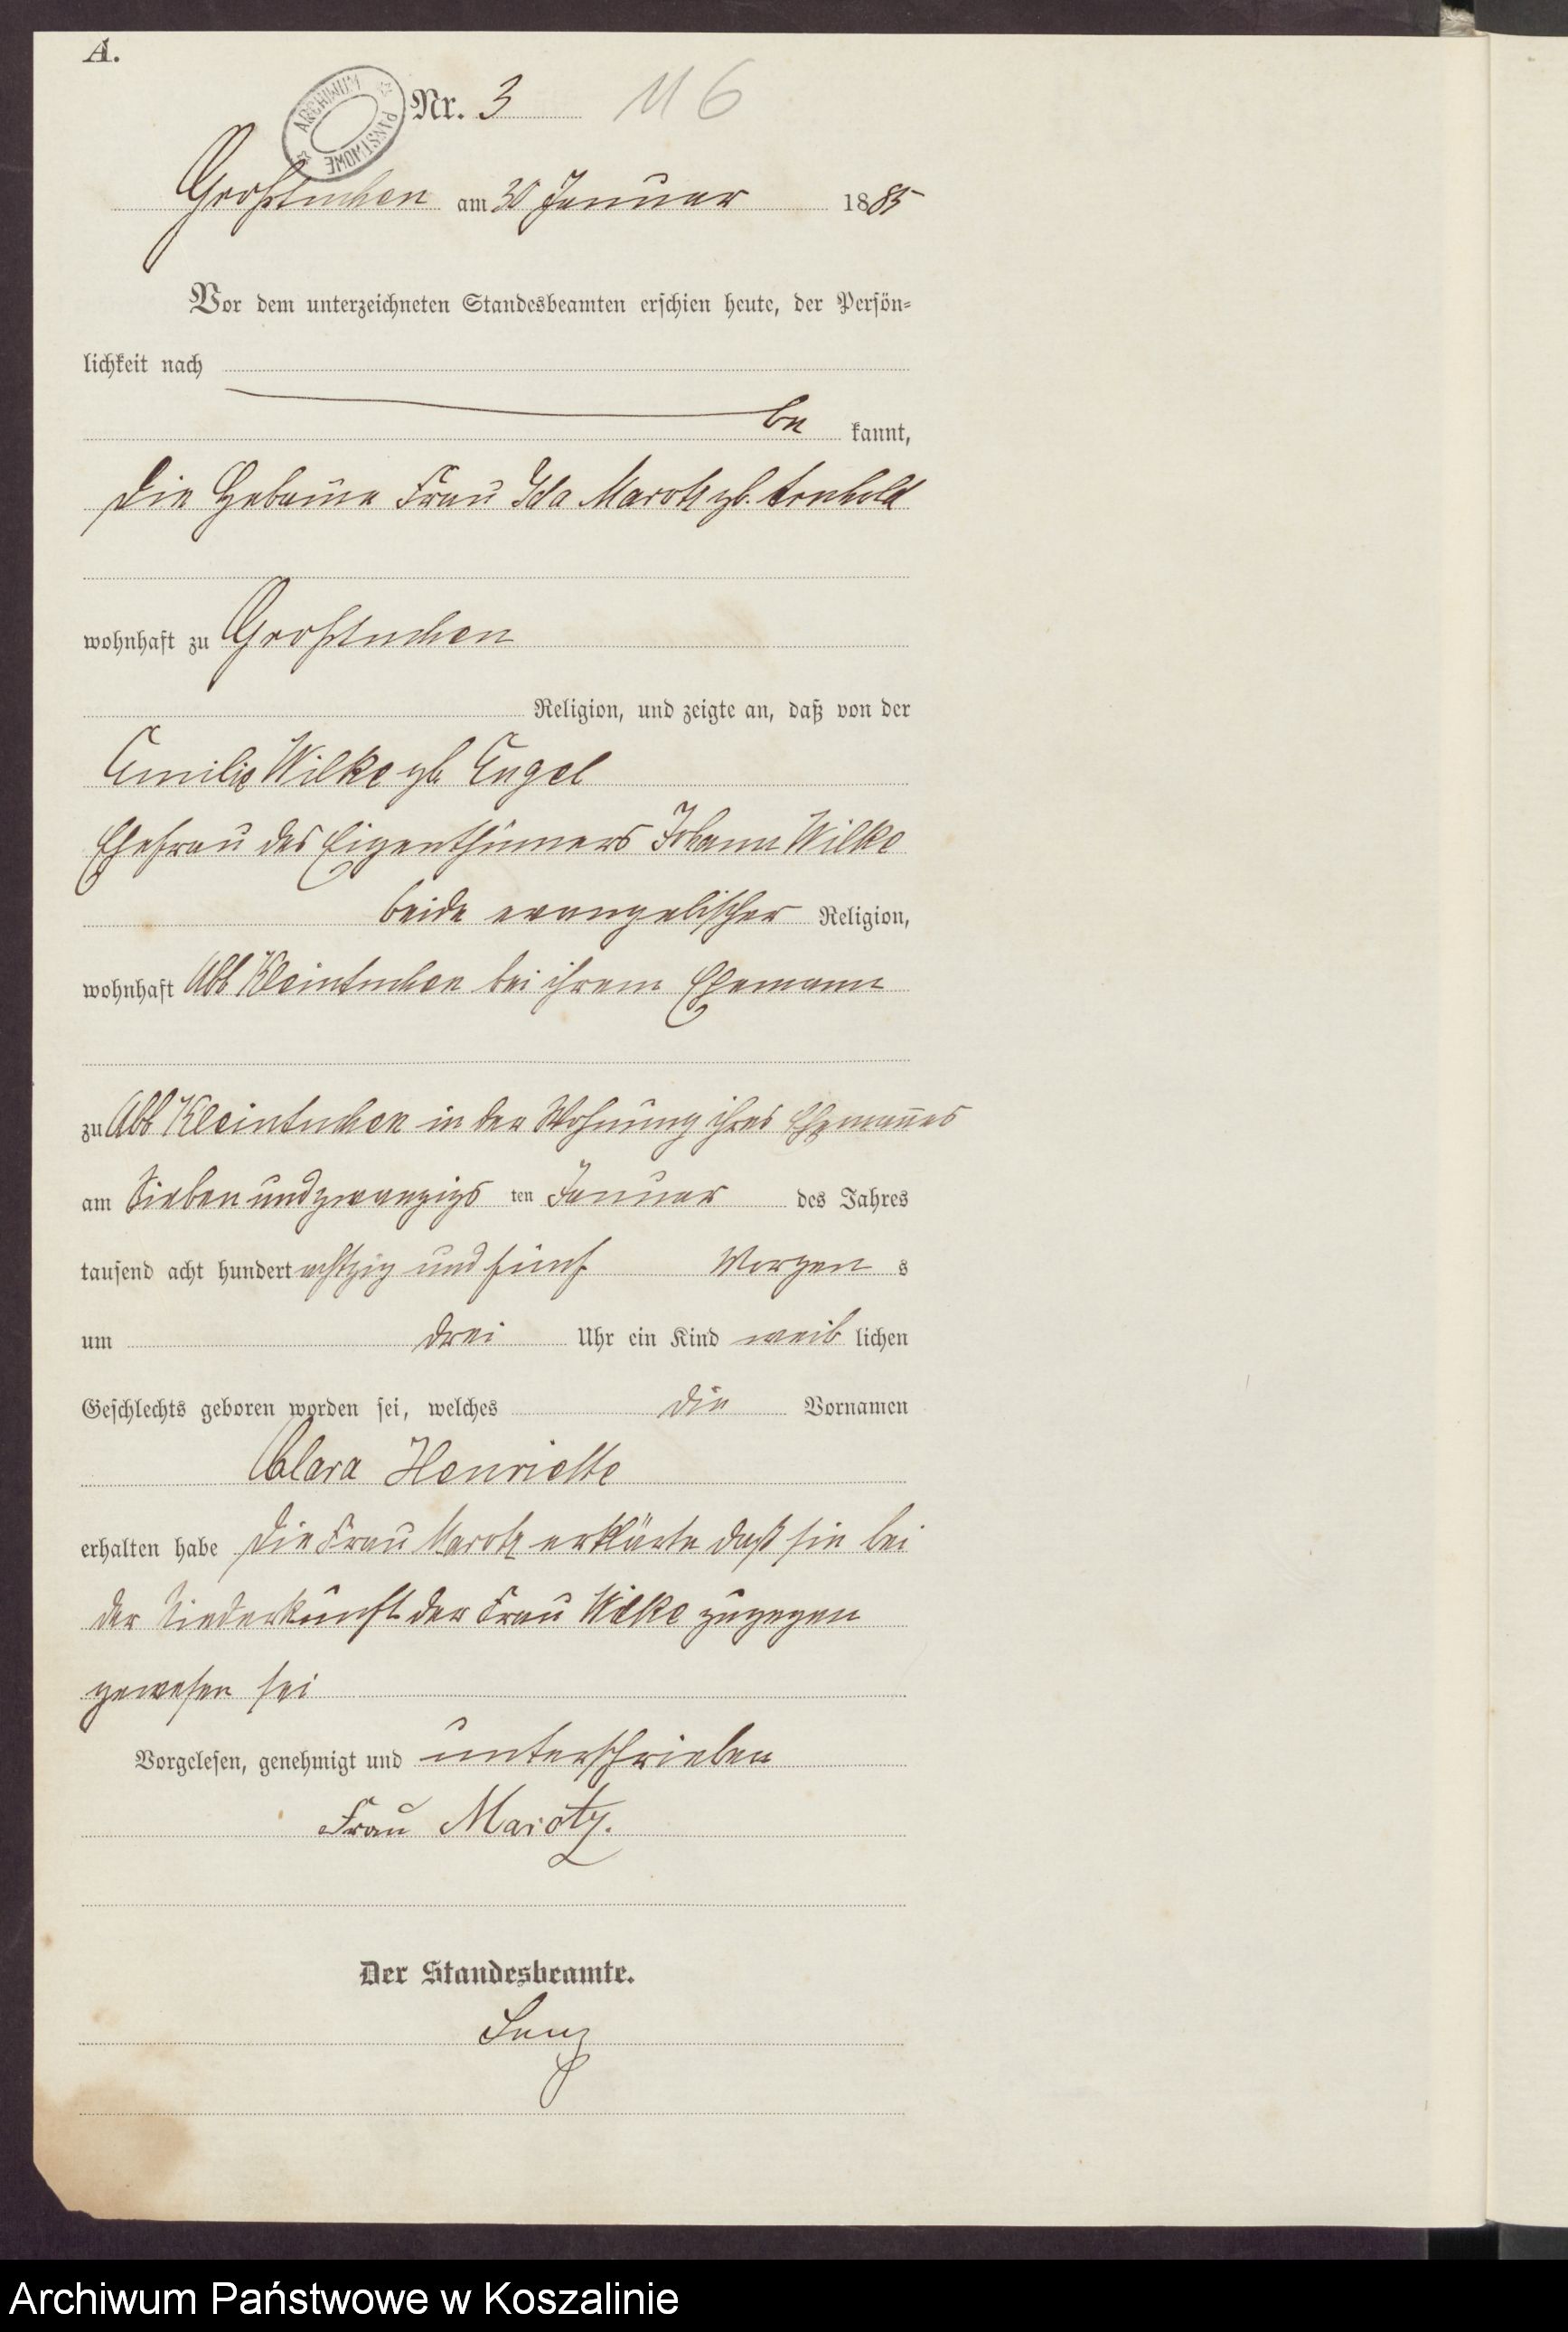 A.
ARCHIWUM PAŃSTWOWE
Nr. 3 116
Großtuchen am 30 Januar 1885
Vor dem unterzeichneten Standesbeamten erschien heute, der Persön-
lichkeit nach
be kannt,
die Hebame Frau Ida Marotz gb. Arnhold
wohnhaft zu Großtuchen
Religion, und zeigte an, daß von der
Emilie Wilke gb. Engel
Ehefrau des Eigenthümers Johann Wilke
beide evangelischer Religion,
wohnhaft Abb Kleintuchen bei ihrem Ehemann
zu Abb Kleintuchen in der Wohnung ihres Ehemannes
am Sieben und zwanzigs ten Januar des Jahres
tausend acht hundert achtzig und fünf Morgen s
um drei Uhr ein Kind weib lichen
Geschlechts geboren worden sei, welches die Vornamen
Clara Henriette
erhalten habe Die Frau Marotz erklärte daß sie bei
der Niederkunft der Frau Wilke zugegen
gewesen sei
Vorgelesen, genehmigt und unterschrieben
Frau Marotz.
Der Standesbeamte.
Archiwum Państwowe w Koszalinie